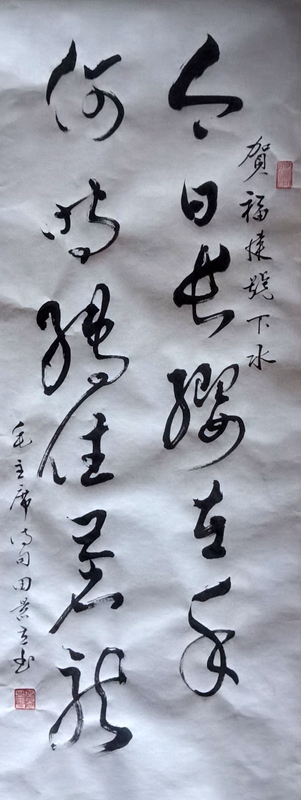 賀福捷號下水
今日长缨在手
何时缚住苍龙
毛主席诗句田景立书